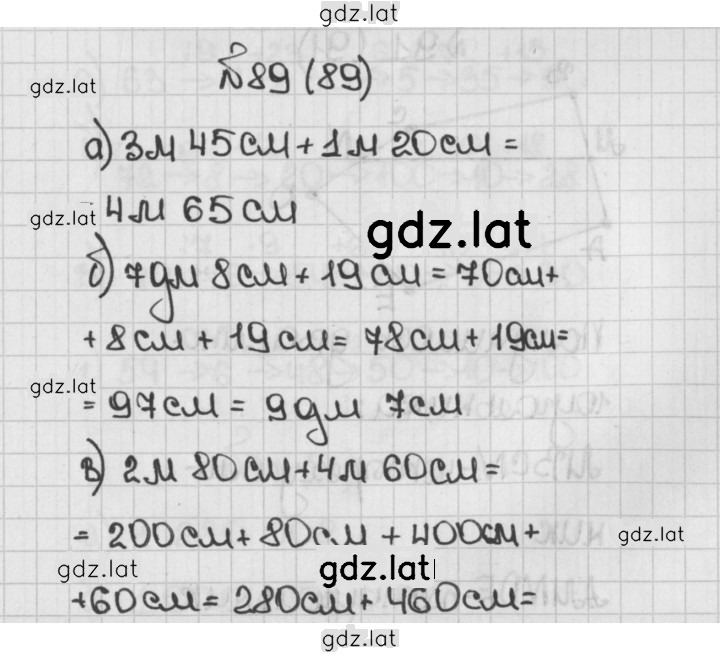 gdz.lat
№89 (89)
gdz.lat
а) 3м 45см + 1м 20см =
gdz.lat 4м 65см
gdz.lat
б) 7дм 8см + 19см = 70см +
+ 8см + 19см = 78см + 19см =
gdz.lat
= 97см = 9дм 7см
в) 2м 80см + 4м 60см =
= 200см + 80см + 400см +
gdz.lat
gdz.lat
gdz.lat
+ 60см = 280см + 460см =
gdz.lat